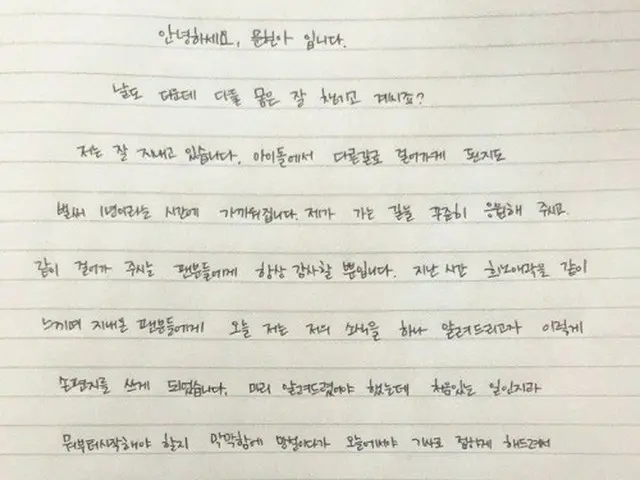 안녕하세요, 문현아 입니다.
날도 더운데 다들 몸은 잘 챙기고 계시죠?
저는 잘 지내고 있습니다. 아이돌에서 다른길로 걸어가게 된지도
벌써 1년이라는 시간에 가까워집니다. 제가 가는 길을 꾸준히 응원해 주시고
같이 걸어가 주시는 팬분들에게 항상 감사할 뿐입니다. 지난 시간 희노애락을 같이
느끼며 지내온 팬분들에게 오늘 저는 저의 소식을 하나 알려드리고자 이렇게
손편지를 쓰게 되었습니다. 미리 알려드렸어야 했는데 처음있는 일인지라
뭐부터시작해야 할지 막막함에 망설이다가 오늘에서야 기사로 접하게 해드려서